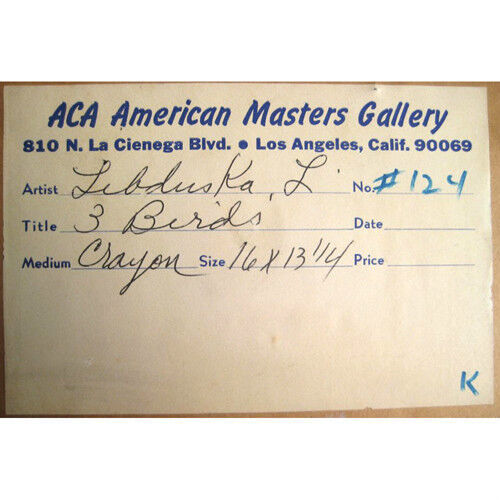 ACA American Masters Gallery
810 N. La Cienega Blvd. • Los Angeles, Calif. 90069
Artist Lebduska, L. No. #124
Title 3 Birds Date
Medium Crayon Size 16 X 13 1/4 Price
K